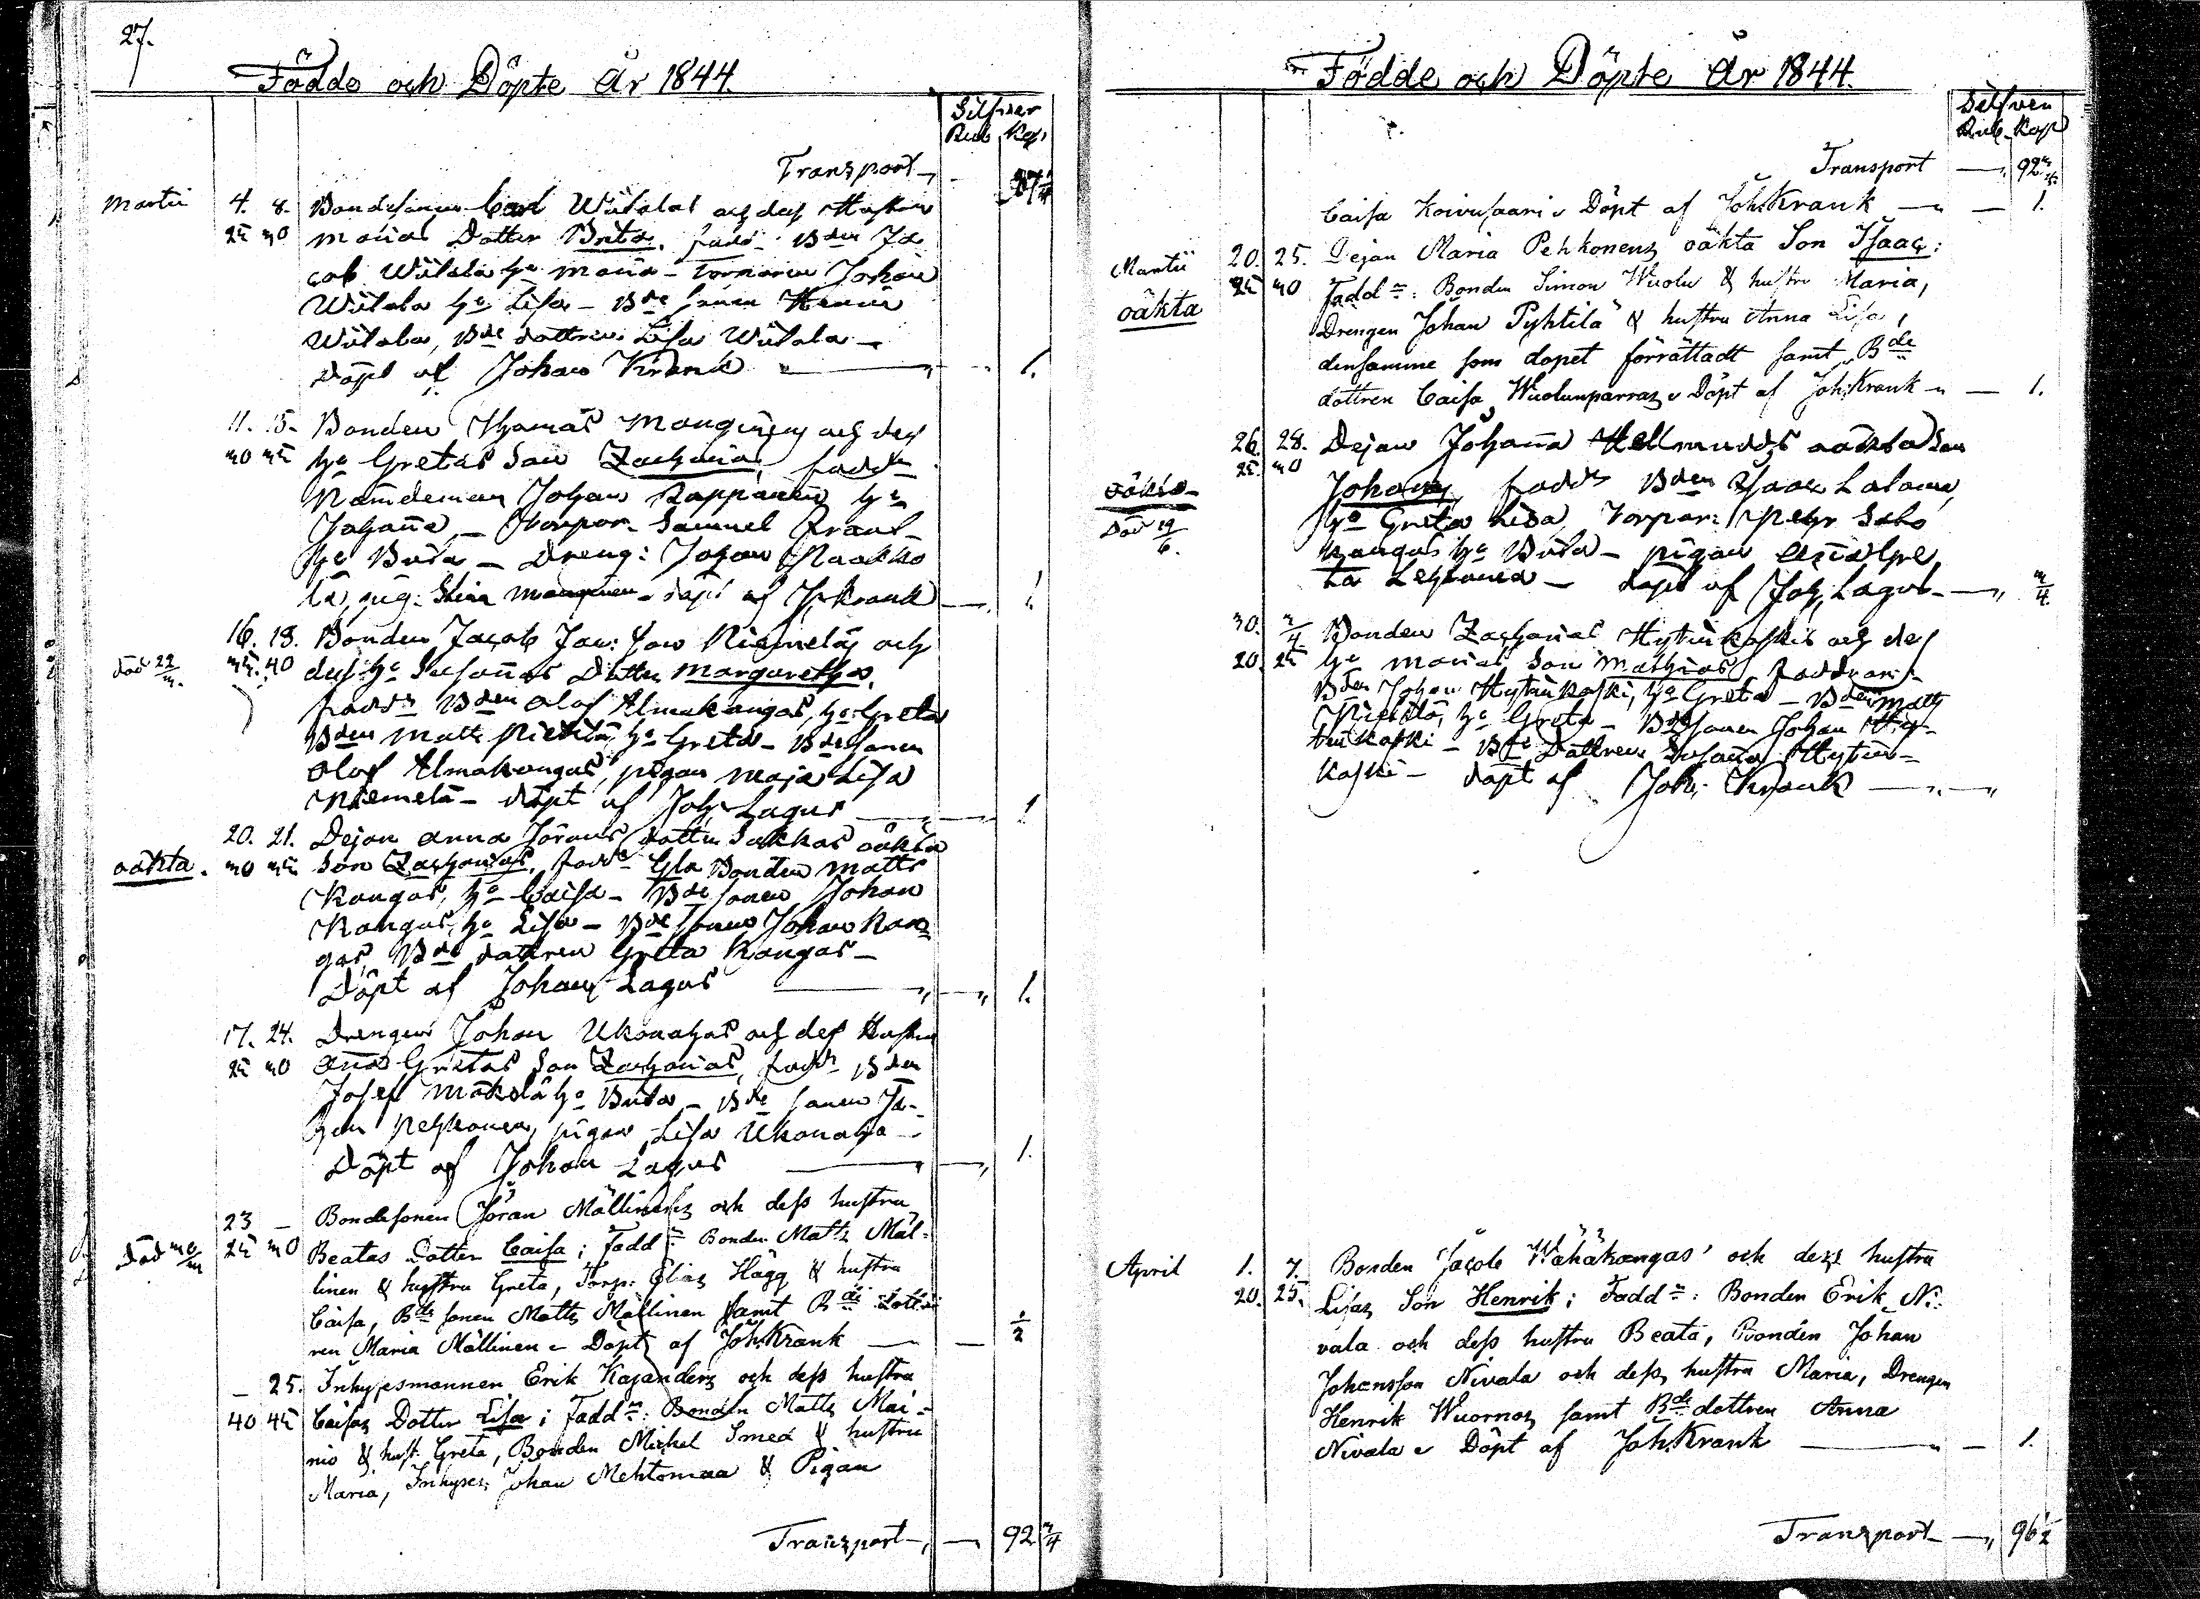 27.
Födde och Döpte År 1844.
Silfver
Rub. Kop.
Transport
Martii 4. 8. Bondesonen Carl Wiitalas och dess Hustru
Marias Dotter Brita. fadd. Bden Ja
cob Wiitala ha Maria - Torparen Johan
Wiitala ha Lisa - Bde sonen Henric
Wiitala, Bde dottren Lisa Wiitala -
Döpt af Johan Krank 1.
11. 15. Bonden Thomas Manginens och dess
ha Gretas Son Zacharias, fadd
Nämdeman Johan Rappanen ha
Johanna - Torpar. Samuel Frant
ha Brita - Dreng: Johan Raakko
la, pig: Stina Manginen - döpt af J. Krank 1.
16. 18. Bonden Jacob Jac: son Niemeläs och
död 22 dess ha Susannas Dotter Margaretha.
fadd Bden Olof Almakangas, ha Greta
Bden Matts Pietilä ha Greta - Bde sonen
Olof Almakangas, pigan Maja Lisa
Niemelä - döpt af Joh. Lagus 1
20. 21. Dejan Anna Jörans dotter Sakkas oäkta
oäkta. Son Zacharias, fadd Gla Bonden Matts
Kangas, ha Caisa - Bde sonen Johan
Kangas, ha Lisa - Bde sonen Johan Kan=
gas, Bde dottren Greta Kangas -
Döpt af Johan Lagus 1.
17. 24. Drengen Johan Ukonahos och dess Hustru
Anna Gretas Son Zacharias, fadd Bden
Josef Mäkelä ha Brita - Bde sonen Jo-
han Pehkonen, pigan Lisa Ukonaho -
Döpt af Johan Lagus 1.
23 - Bondesonen Jöran Mällinens och dess hustru
Beatas Dotter Caisa; Fadd: Bonden Matts Mäl=
linen & hustru Greta, Torp: Elias Hägg & hustru
Caisa, Bde sonen Matts Mällinen samt Bde dott
ren Maria Mällinen - Döpt af Joh. Krank 1/2
- 25. Inhysesmannen Erik Kajanders och dess hustru
40 45 Caisas Dotter Lisa; Fadd: Bonden Matts Mai=
nio & hust. Greta, Bonden Mickel Smed & hustru
Maria, Inhyses: Johan Mehtomaa & Pigan
Transport 92 3/4
Födde och Döpte År 1844.
Silfver
Rub. Kop
Transport 92 3/4
Caisa Koivusaari Döpt af Joh. Krank 1.
Martii 20. 25. Dejan Maria Pehkonens oäkta Son Isaac:
oäkta Fadd: Bonden Simon Wuolu & hustru Maria,
Drengen Johan Pyhtilä & hustru Anna Lisa,
densamme som dopet förrättadt samt Bde
dottren Caisa Wuolunparras Döpt af Joh. Krank 1.
26. 28. Dejan Johanna Hellmudds oäkta Son
oäkta Johan, fadd Bden Isaac
död 19/6. ha Greta Lisa, Torpar: Pehr Salo
kangas ha Brita - pigan Anna Gre
ta Lehtonen - döpt af Joh. Lagus 3/4.
30. Bonden Zacharias Hytinkoskis och dess
20. 25 ha Marias Son Mathias, faddrar:
Bden Johan Hytinkoski, ha Greta - Bden Matts
Pietilä, ha Greta - Bde sonen Johan Hy-
tinkoski - Bde Dottren Susanna Hytin=
koski - döpt af Joh. Krank
April 1. 7. Bonden Jacob Wähäkangas' och dess hustru
20. 25. Lisas Son Henrik; Fadd: Bonden Erik Ni=
vala och dess hustru Beata, Bonden Johan
Johansson Nivala och dess hustru Maria, Drengen
Henrik Wuornos samt Bde dottren Anna
Nivala Döpt af Joh. Krank 1.
Transport 96 1/2